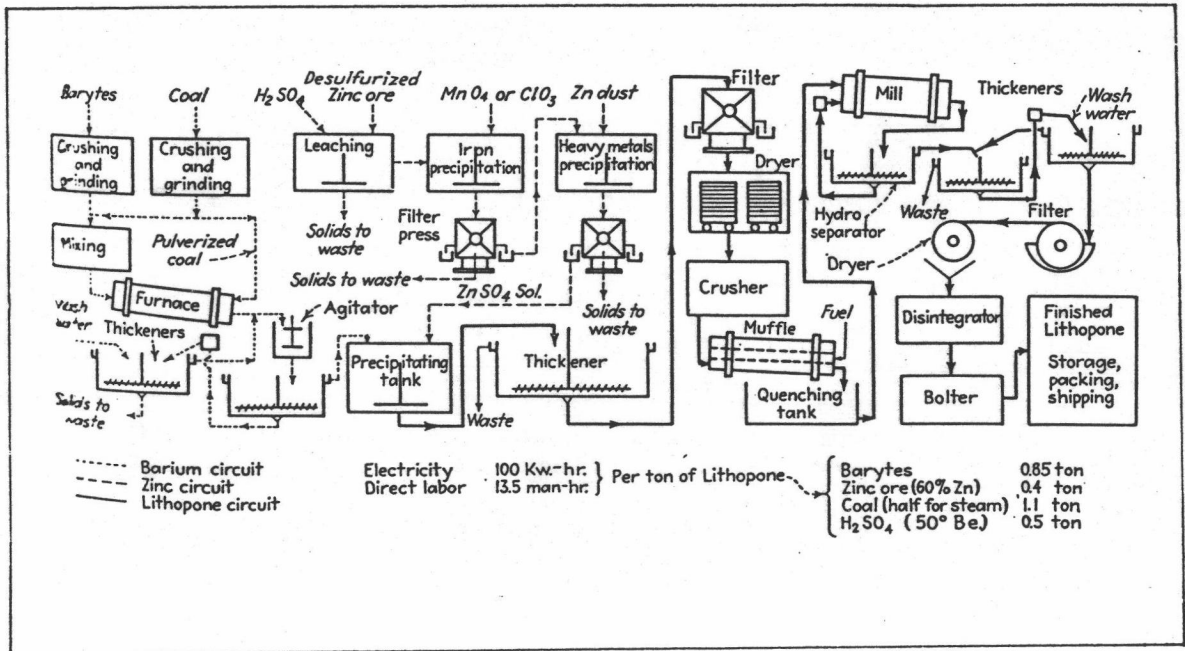 Barytes
Coal
H₂SO₄
Desulfurized
Zinc ore
MnO₄ or ClO₃
Zn dust
Crushing
and
grinding
Crushing
and
grinding
Leaching
Iron
precipitation
Heavy metals
precipitation
Mixing
Pulverized
coal
Solids to
waste
Filter
press
Solids to waste
ZnSO₄ Sol.
Solids to
waste
Furnace
Agitator
Wash
water
Thickeners
Solids to
waste
Precipitating
tank
Thickener
Waste
Filter
Dryer
Crusher
Muffle
Fuel
Quenching
tank
Mill
Thickeners
Wash
water
Hydro
separator
Waste
Filter
Dryer
Disintegrator
Bolter
Finished
Lithopone
Storage,
packing,
shipping
Barium circuit
Zinc circuit
Lithopone circuit
Electricity 100 Kw.-hr.
Direct labor 13.5 man-hr.
Per ton of Lithopone
Barytes 0.85 ton
Zinc ore (60% Zn) 0.4 ton
Coal (half for steam) 1.1 ton
H₂SO₄ (50° Be.) 0.5 ton